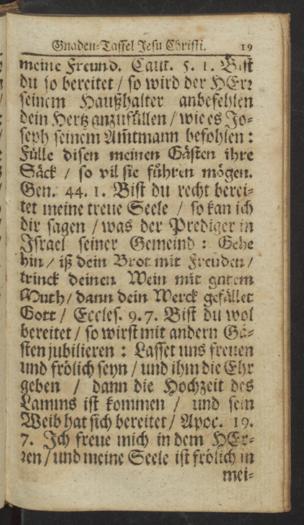 Gnaden-Taffel Jesu Christi. 19
meine Freund. Cant. 5. 1. Bist
du so bereitet / so wird der HErr
seinem Haußhalter anbefehlen
dein Hertz anzufüllen / wie es Jo-
seph seinem Amtmann befohlen:
Fülle disen meinen Gästen ihre
Säck / so vil sie führen mögen.
Gen. 44. 1. Bist du recht berei-
tet meine treue Seele / so kan ich
dir sagen / was der Prediger in
Israel seiner Gemeind: Gehe
hin / iß dein Brot mit Freuden /
trinck deinen Wein mit gutem
Muth / dann dein Werck gefället
Gott / Eccles. 9. 7. Bist du wol
bereitet / so wirst mit andern Gä-
sten jubilieren: Lasset uns freuen
und frölich seyn / und ihm die Ehr
geben / dann die Hochzeit des
Lamms ist kommen / und sein
Weib hat sich bereitet / Apoc. 19.
7. Ich freue mich in dem HEr-
ren / und meine Seele ist frölich in
mei-